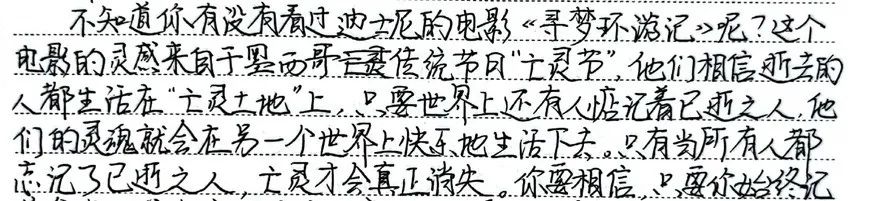 不知道你有没有看过迪士尼的电影《寻梦环游记》呢?这个
电影的灵感来自于墨西哥传统节日"亡灵节",他们相信逝去的
人都生活在"亡灵土地"上,只要世界上还有人惦记着已逝之人,他
们的灵魂就会在另一个世界上快乐地生活下去。只有当所有人都
忘记了已逝之人,亡灵才会真正消失。你要相信,只要你始终记